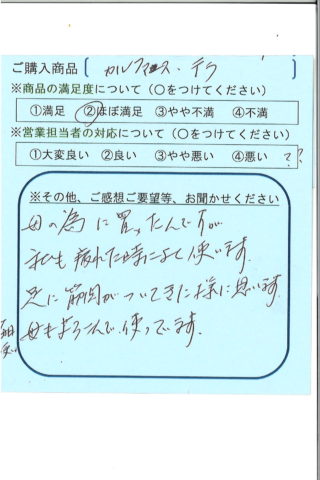 ご購入商品
※商品の満足度について（○をつけてください）
①満足 ②ほぼ満足 ③やや不満 ④不満
※営業担当者の対応について（○をつけてください）
①大変良い ②良い ③やや悪い ④悪い ??
※その他、ご感想ご要望等、お聞かせください
母の為に買ったんですが
私も疲れた時によく使います。
足に筋肉がついてきた様に思います
母もよろこんで使ってます。